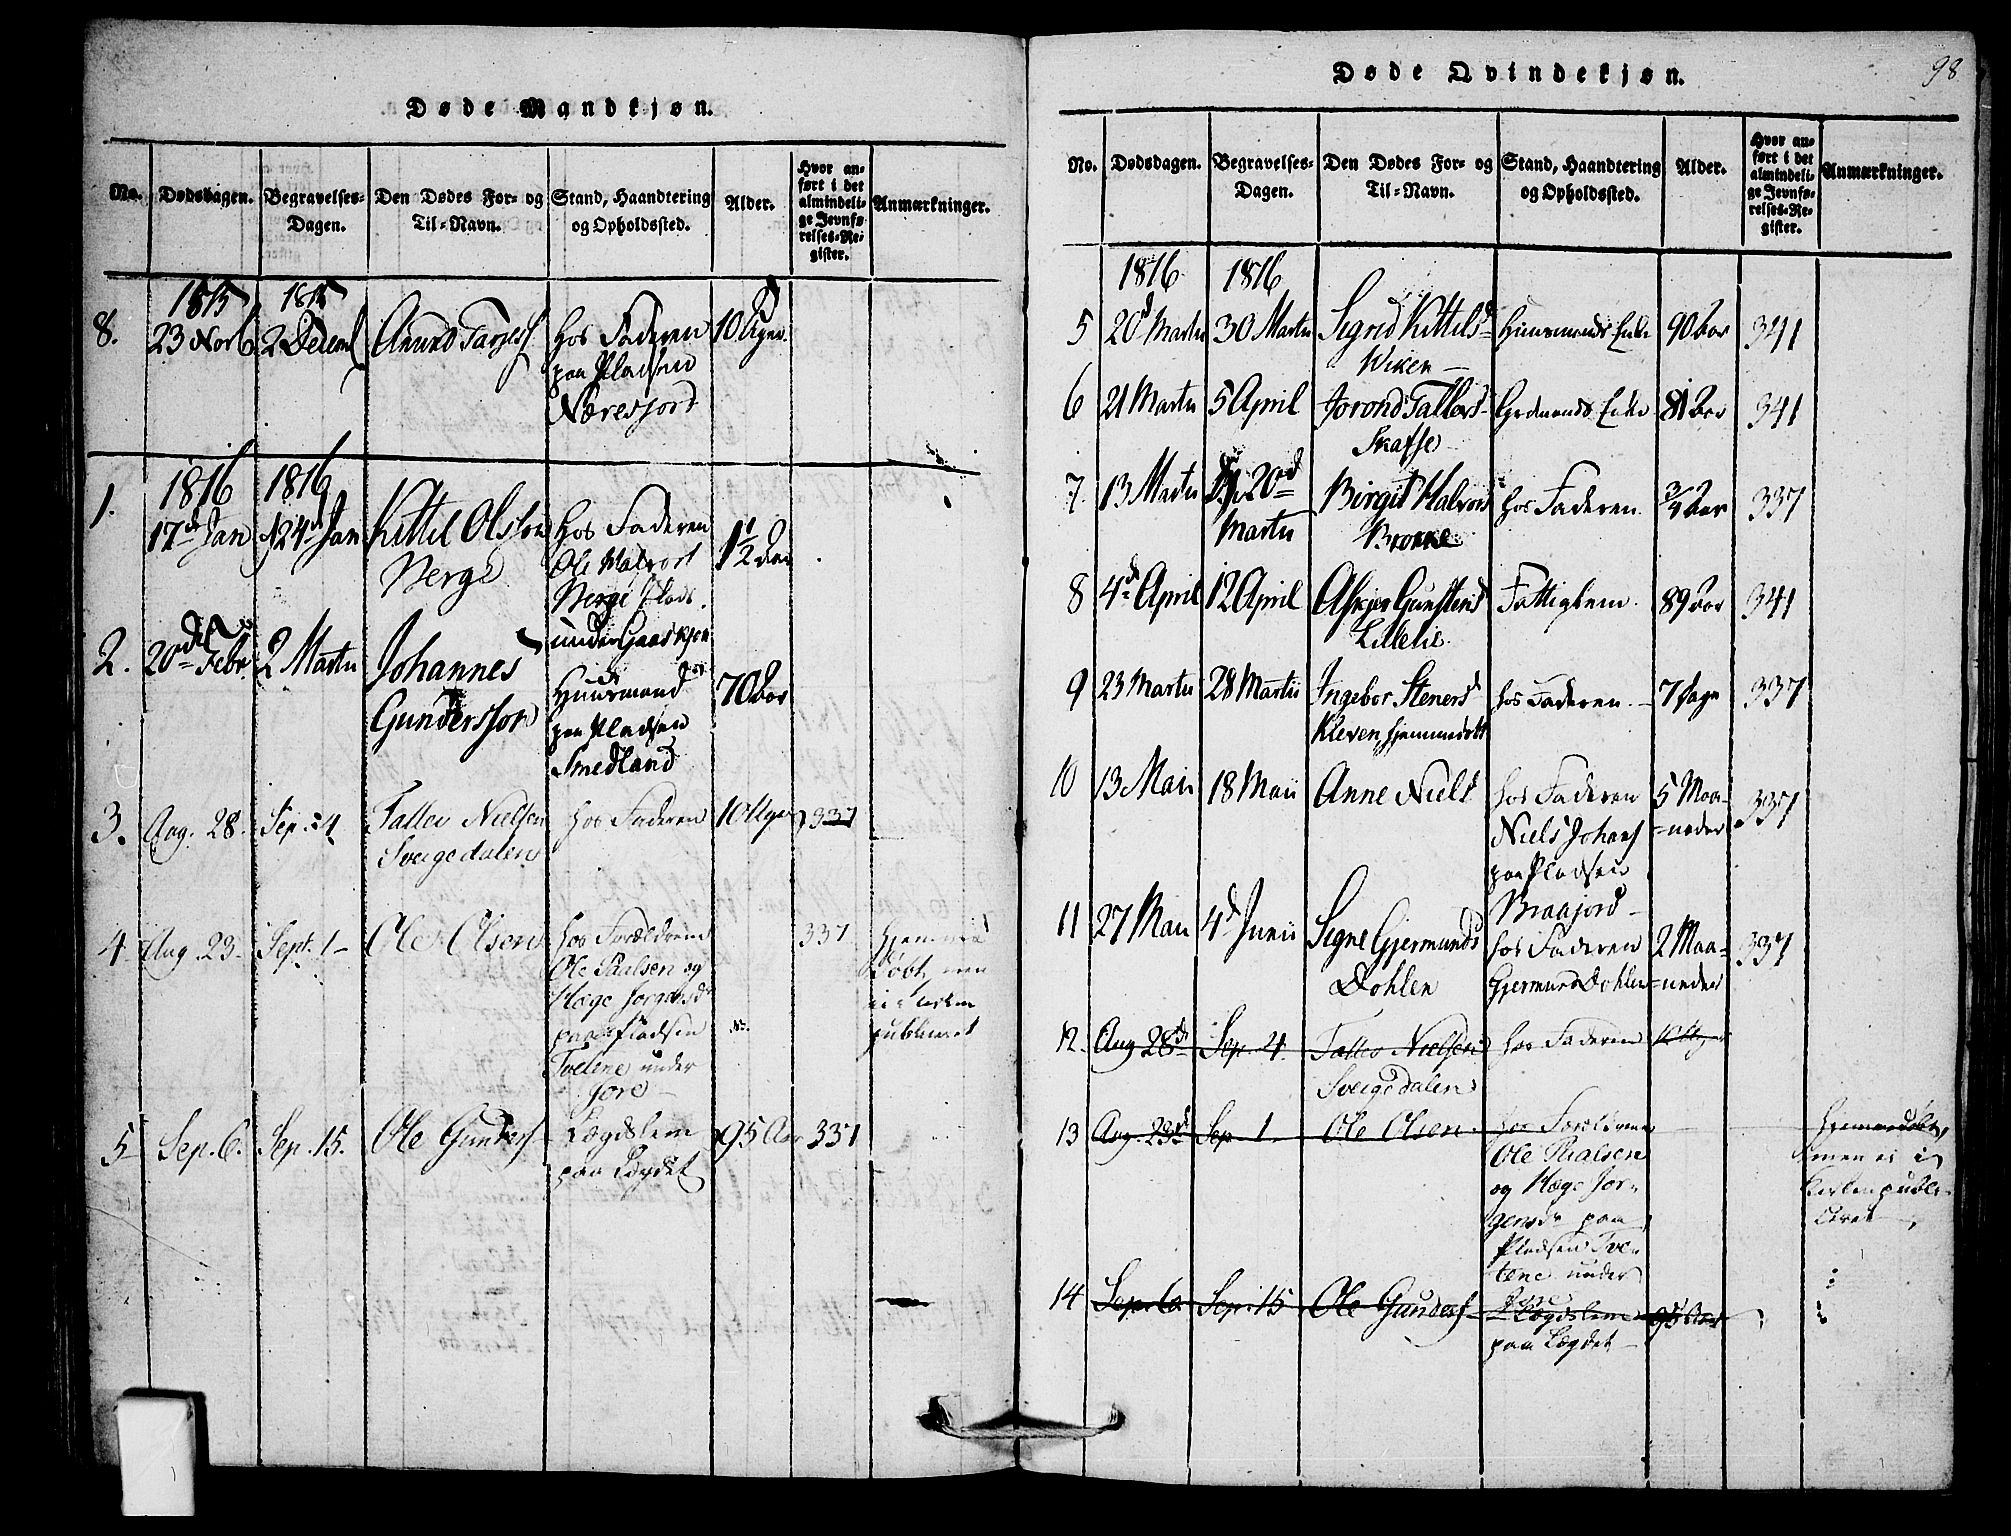 Døde Mandkjøn.
No.
Dødsdagen.
Begravelses-
Dagen.
Den Dødes For- og
Til-Navn.
Stand, Haandtering
og Opholdssted.
Alder.
Hvor an-
ført i det
almindeli-
ge Jevnfø-
relses-Re-
gister.
Anmærkninger.
8.
1815
23 Novb
1815
2 Decemb
Amund Targes
hos Faderen
paa Pladsen
Næresjord
10 Uger.
1.
1816
17de Jan
1816
24d Jan
Kittil Olsson
Berge
hos Faderen
Ole Halvors
Berge Plads
under Gaaskjen
1 1/2 Aar
2.
20de Febr.
2 Martii
Johannes
Gundersson
Huusmand
paa Pladsen
Smedland
70 Aar
3.
Aug. 28.
Sep: 4
Tallev Nielsen
Sveigedalen
hos Faderen
10 Uger
337
4
Aug. 23.
Sept. 1
Ole Olsen
hos Forældrene
Ole Paalsen og
Hæge Jorgensdr
paa Pladsen
Tvetene under
Jore
337
Hjemme
døbt, men
ei i Kirken
publiceret
5
Sep. 6.
Sep. 15.
Ole Gunders
Lægdslem
paa Lægdet
95 Aar
337
98
Døde Qvindekjøn.
No.
Dødsdagen.
Begravelses-
Dagen.
Den Dødes For- og
Til-Navn.
Stand, Haandtering
og Opholdssted.
Alder.
Hvor an-
ført i det
almindeli-
ge Jevnfø-
relses-Re-
gister.
Anmærkninger.
5
1816
20d Martii
1816
30 Martii
Sigrid Kittelsd
Wiken
Huusmands Enke
90 Aar
341
6
21 Martii
5 April
Jorond Tallevs
Skafse
Grdmands Enke
81 Aar
341
7.
13 Martii
20d
Martii
Birgit Halvors
Brokke
hos Faderen
3/4 Aar
337
8
4de April
12 April
Askjer Gunstensd
Lillelie
Fattiglem.
89 Aar
341
9
23 Martii
28 Martii
Ingebor Steners
Kleven, hjemmedøbt
hos Faderen
7 dage
337
10
13 Maii
18 Maii
Anne Niels
hos Faderen
Niels Johans
paa Pladsen
Braajord
5 Maa-
neder
337
11
27 Maii
4d Junii
Signe Gjermunds
Dohlen
hos Faderen
Gjermund Dohlen
2 Maa-
neder
337
12.
Aug 28de
Sep. 4.
Tallev Nielsen
Sveigedalen
hos Faderen
10 Uger
13
Aug. 23d
Sep. 1
Ole Olsen
hos Forældrene
Ole Paalsen
og Hæge Jor-
gensdr paa
Pladsen Tve-
tene under
Jore
Hjemmedøbt,
men ei i
Kirken publi-
ceret
14
Sep. 6
Sep. 15
Ole Gunders
Lægdslem
paa Lægdet
95 Aar